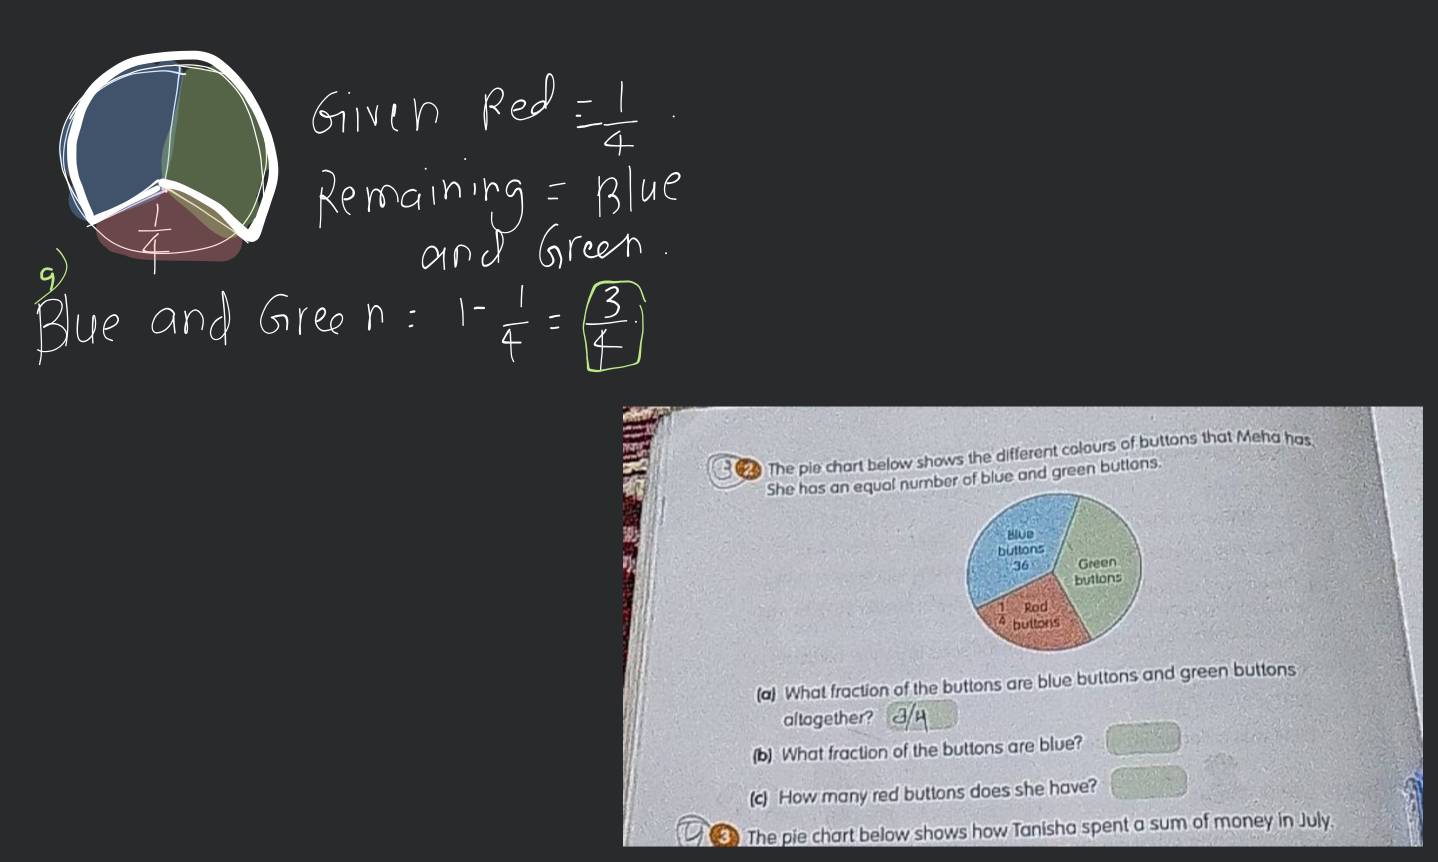 Given Red = 1/4 .
Remaining = Blue
and Green .
1/4
a)
Blue and Green : 1 - 1/4 = 3/4 .
3 2 The pie chart below shows the different colours of buttons that Meha has.
She has an equal number of blue and green buttons.
Blue
buttons
36
Green
buttons
1/4 Red
buttons
(a) What fraction of the buttons are blue buttons and green buttons
altogether? 3/4
(b) What fraction of the buttons are blue?
(c) How many red buttons does she have?
3 The pie chart below shows how Tanisha spent a sum of money in July.